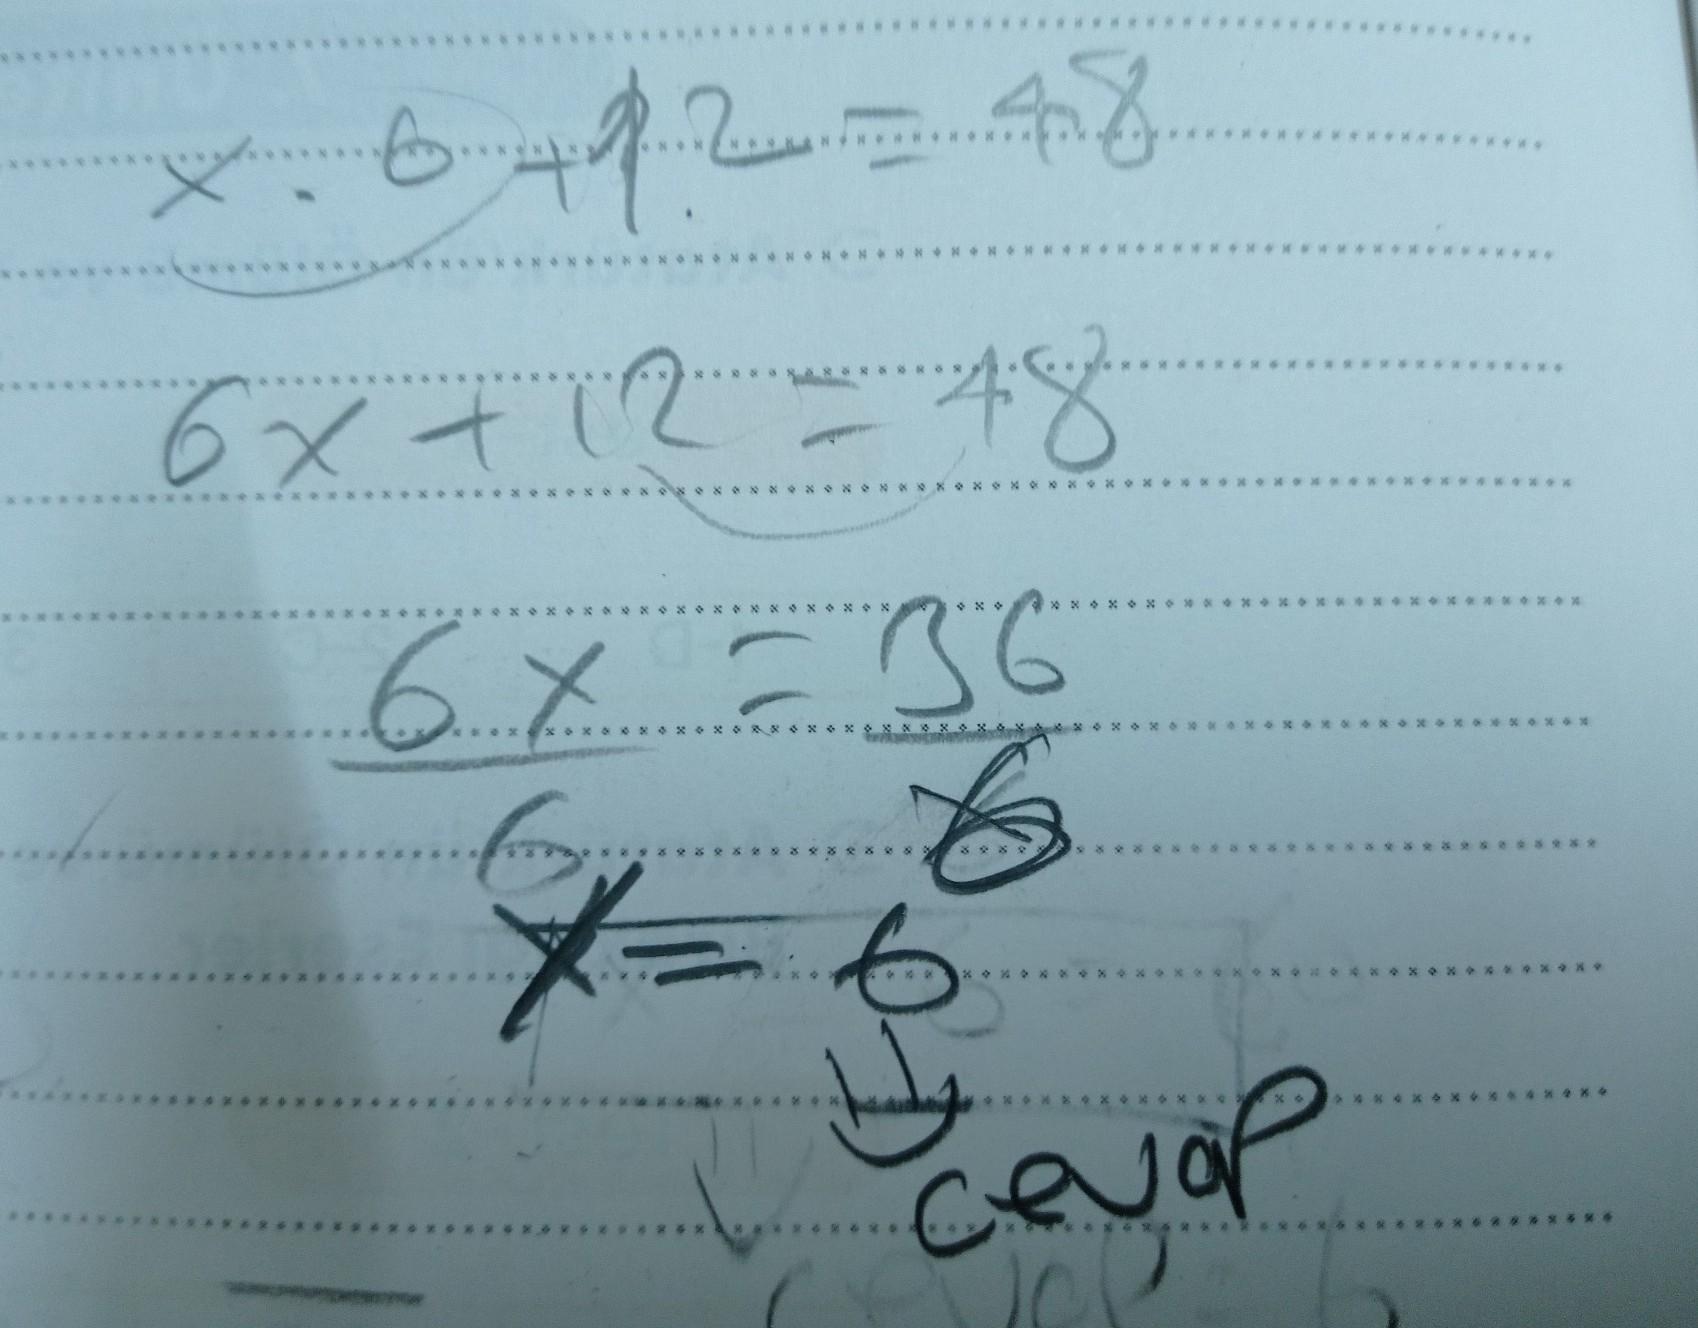 x . 6 + 12 = 48
6x + 12 = 48
6x = 36
6 6
x = 6
cevap